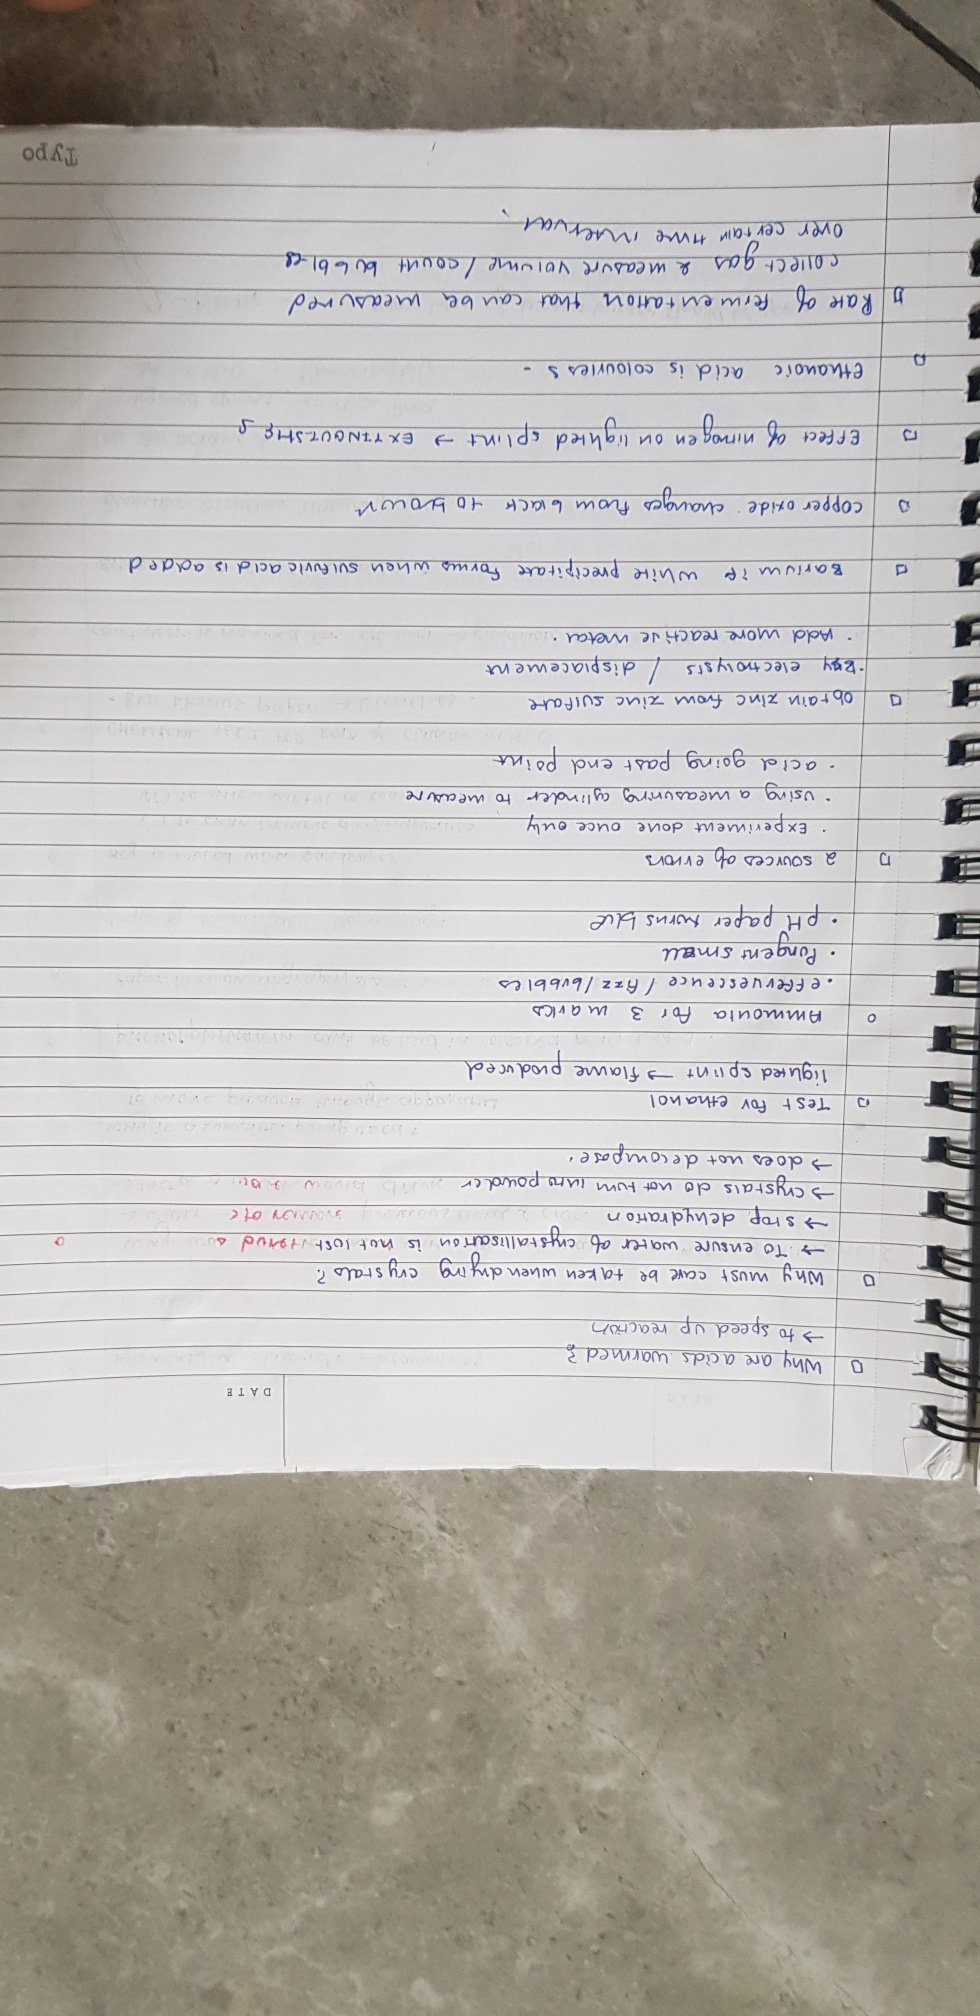 DATE
Why are acids warmed?
→ to speed up reaction
Why must care be taken when drying crystals?
→ To ensure water of crystallisation is not lost
→ stop dehydration
→ crystals do not turn into powder
→ does not decompose.
Test for ethanol
lighted splint → flame produced
Ammonia for 3 marks
• effervescence / fizz / bubbles
• Pungent smell
• pH paper turns blue
2 sources of errors
• Experiment done once only
• using a measuring cylinder to measure
• acid going past end point
obtain zinc from zinc sulfate
• electrolysis / displacement
• Add more reactive metal.
Barium if white precipitate forms when sulfuric acid is added
copper oxide changes from black to brown
Effect of nitrogen on lighted splint →
Ethanoic acid is colourless -
Rate of fermentation that can be measured
collect gas & measure volume / count bubbles
over certain time interval.
Typo